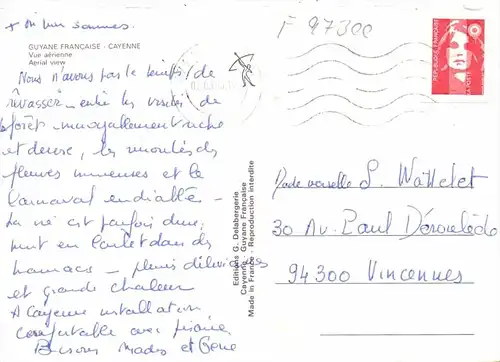 où nous sommes.
F 97300
GUYANE FRANÇAISE - CAYENNE
Vue aérienne
Aerial view
Nous n'avons pas le temps de
rêvasser entre les visites de
forêt incroyablement riche
et dense, les remontées des
fleuves immenses et le
Carnaval endiablé -
La vie est parfois dure
nuit en dans des
hamacs - pluies diluviennes
et grande chaleur
A Cayenne installation
confortable avec piscine
Bisous Mados et Gene
Editions G. Delabergerie
Cayenne - Guyane Française
Made in France - Reproduction interdite
REPUBLIQUE FRANÇAISE
LA POSTE
Mademoiselle S. Wattelet
30 Av. Paul Déroulède
94300 VINCENNES